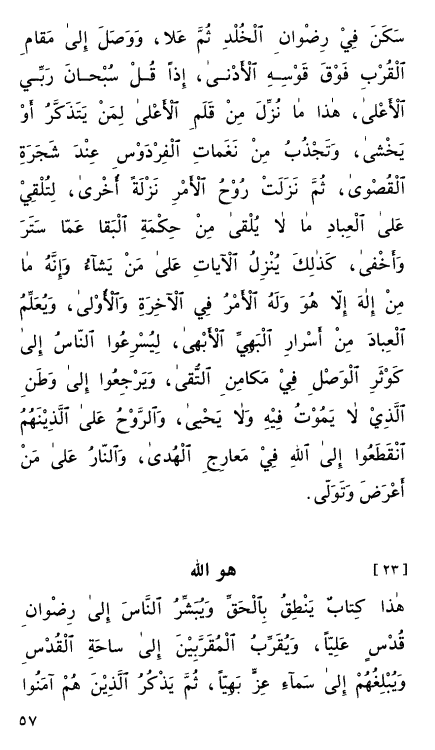 سَكَنَ فِيْ رِضْوانِ ٱلْخُلْدِ ثُمَّ عَلا، وَوَصَلَ إِلىٰ مَقامِ
ٱلْقُرْبِ فَوْقَ قَوْسِهِ ٱلْأَدْنىٰ، إِذاً قُلْ سُبْحانَ رَبِّيَ
ٱلْأَعْلىٰ، هٰذا ما نُزِّلَ مِنْ قَلَمِ ٱلْأَعْلىٰ لِمَنْ يَتَذَكَّرُ أَوْ
يَخْشىٰ، وَتَجْذُبُ مِنْ نَغَماتِ ٱلْفِرْدَوْسِ عِنْدَ شَجَرَةِ
ٱلْقُصْوىٰ، ثُمَّ نَزَلَتْ رُوْحُ ٱلْأَمْرِ نَزْلَةً أُخْرىٰ، لِتُلْقِيْ
عَلىٰ ٱلْعِبادِ ما لا يُلْقىٰ مِنْ حِكْمَةِ ٱلْبَقا عَمّا سَتَرَ
وَأَخْفىٰ، كَذٰلِكَ يُنْزِلُ ٱلْآياتِ عَلىٰ مَنْ يَشآءُ وَإِنَّهُ ما
مِنْ إِلهَ إِلّا هُوَ وَلَهُ ٱلْأَمْرُ فِي ٱلْآخِرَةِ وَٱلْأُوْلىٰ، وَيُعَلِّمُ
ٱلْعِبادَ مِنْ أَسْرارِ ٱلْبَهِيِّ ٱلْأَبْهىٰ، لِيُسْرِعُوا ٱلنّاسُ إِلىٰ
كَوْثَرِ ٱلْوَصْلِ فِيْ مَكامِنِ ٱلتُّقىٰ، وَيَرْجِعُوا إِلىٰ وَطَنِ
ٱلَّذِيْ لا يَمُوْتُ فِيْهِ وَلا يَحْيىٰ، وَٱلرَّوْحُ عَلىٰ ٱلَّذِيْنَهُمُ
ٱنْقَطَعُوا إِلىٰ ٱللهِ فِيْ مَعارِجِ ٱلْهُدىٰ، وَٱلنّارُ عَلىٰ مَنْ
أَعْرَضَ وَتَوَلّىٰ.
[٢٣] هو الله
هٰذا كِتابٌ يَنْطِقُ بِٱلْحَقِّ وَيُبَشِّرُ ٱلنَّاسَ إِلىٰ رِضْوانِ
قُدْسٍ عَلِيّاً، وَيُقَرِّبُ ٱلْمُقَرَّبِيْنَ إِلىٰ ساحَةِ ٱلْقُدْسِ
وَيُبْلِغُهُمْ إِلىٰ سَمآءِ عِزٍّ بَهِيّاً، ثُمَّ يَذْكُرُ ٱلَّذِيْنَ هُمْ آمَنُوا
٥٧